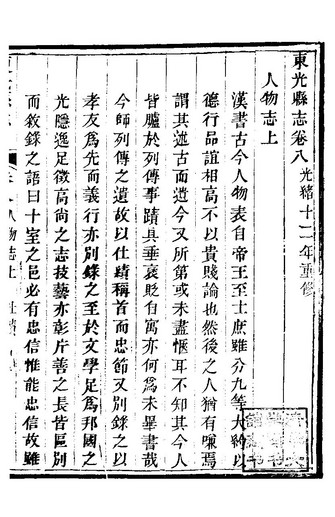 東光縣志卷八 光緒十二年重修
人物志上
漢書古今人物表自帝王至士庶雖分九等大約以
德行品誼相高不以貴賤論也然後之人猶有嗛焉
謂其述古而遺今又所第或未盡愜耳不知其今人
皆臚於列傳事蹟具垂褒貶自寓亦何爲未畢書哉
今師列傳之遺故以仕績稱首而忠節又別錄之以
孝友爲先而義行亦別錄之至於文學足爲邦國之
光隱逸足徵高尚之志技藝亦彰片善之長皆區別
而敘錄之語曰十室之邑必有忠信惟能忠信故雖
人物志上